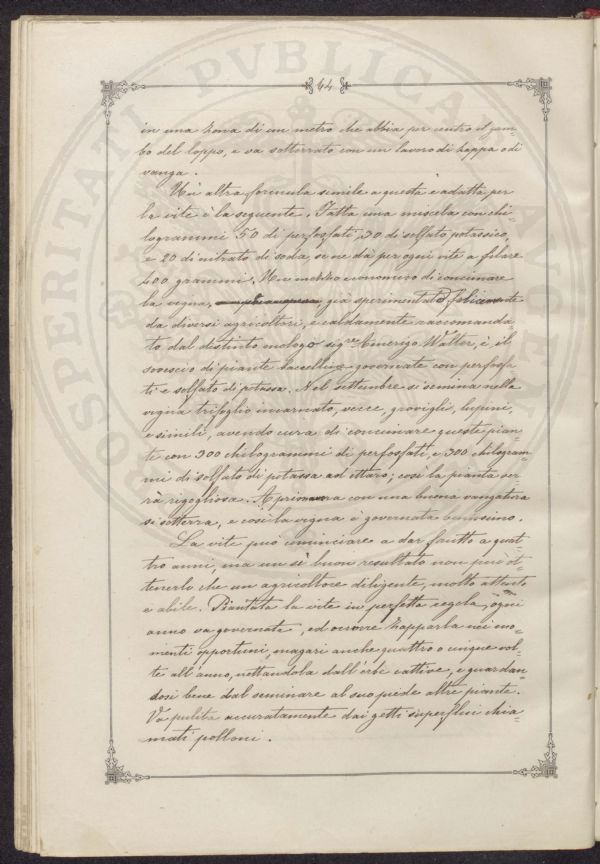 64
in una zona di un metro che abbia per centro il gam=
bo del loppo, e va sotterrato con un lavoro di zappa o di
vanga.
Un altra formula simile a questa e adatta per
la vite è la seguente. Fatta una miscela con chi=
logrammi 50 di perfosfati, 30 di solfato potassico,
e 20 di nitrato di soda se ne dà per ogni vite a filare
400 grammi. Un mezzo economico di concimare
la vigna, già sperimentato felicemente
da diversi agricoltori, e caldamente raccomanda=
to dal distinto enologo sigre Amerigo Walter, è il
sovescio di piante baccelline governate con perfosfa
ti e solfato di potassa. Nel settembre si semina nella
vigna trifoglio incarnato, vecce, lupini,
e simili, avendo cura di concimare queste pian=
te con 300 chilogrammi di perfosfati, e 300 chilogram=
mi di solfato di potassa ad ettaro; così la pianta ver
rà rigogliosa. A primavera con una buona vangatura
si sotterra, e così la vigna è governata benissimo.
La vite può cominciare a dar frutto a quat=
tro anni, ma un sì buon resultato non può ot=
tenerlo che un agricoltore diligente, molto attento
e abile. Piantata la vite in perfetta regola, ogni
anno va governata, ed occorre zapparla nei mo=
menti opportuni, magari anche quattro o cinque vol=
te all'anno, nettandola dall'erbe cattive, e guardan=
dosi bene dal seminare al suo piede altre piante.
Va pulita accuratamente dai getti superflui chia=
mati polloni.
PROSPERITATI PVBLICAE AVGEN